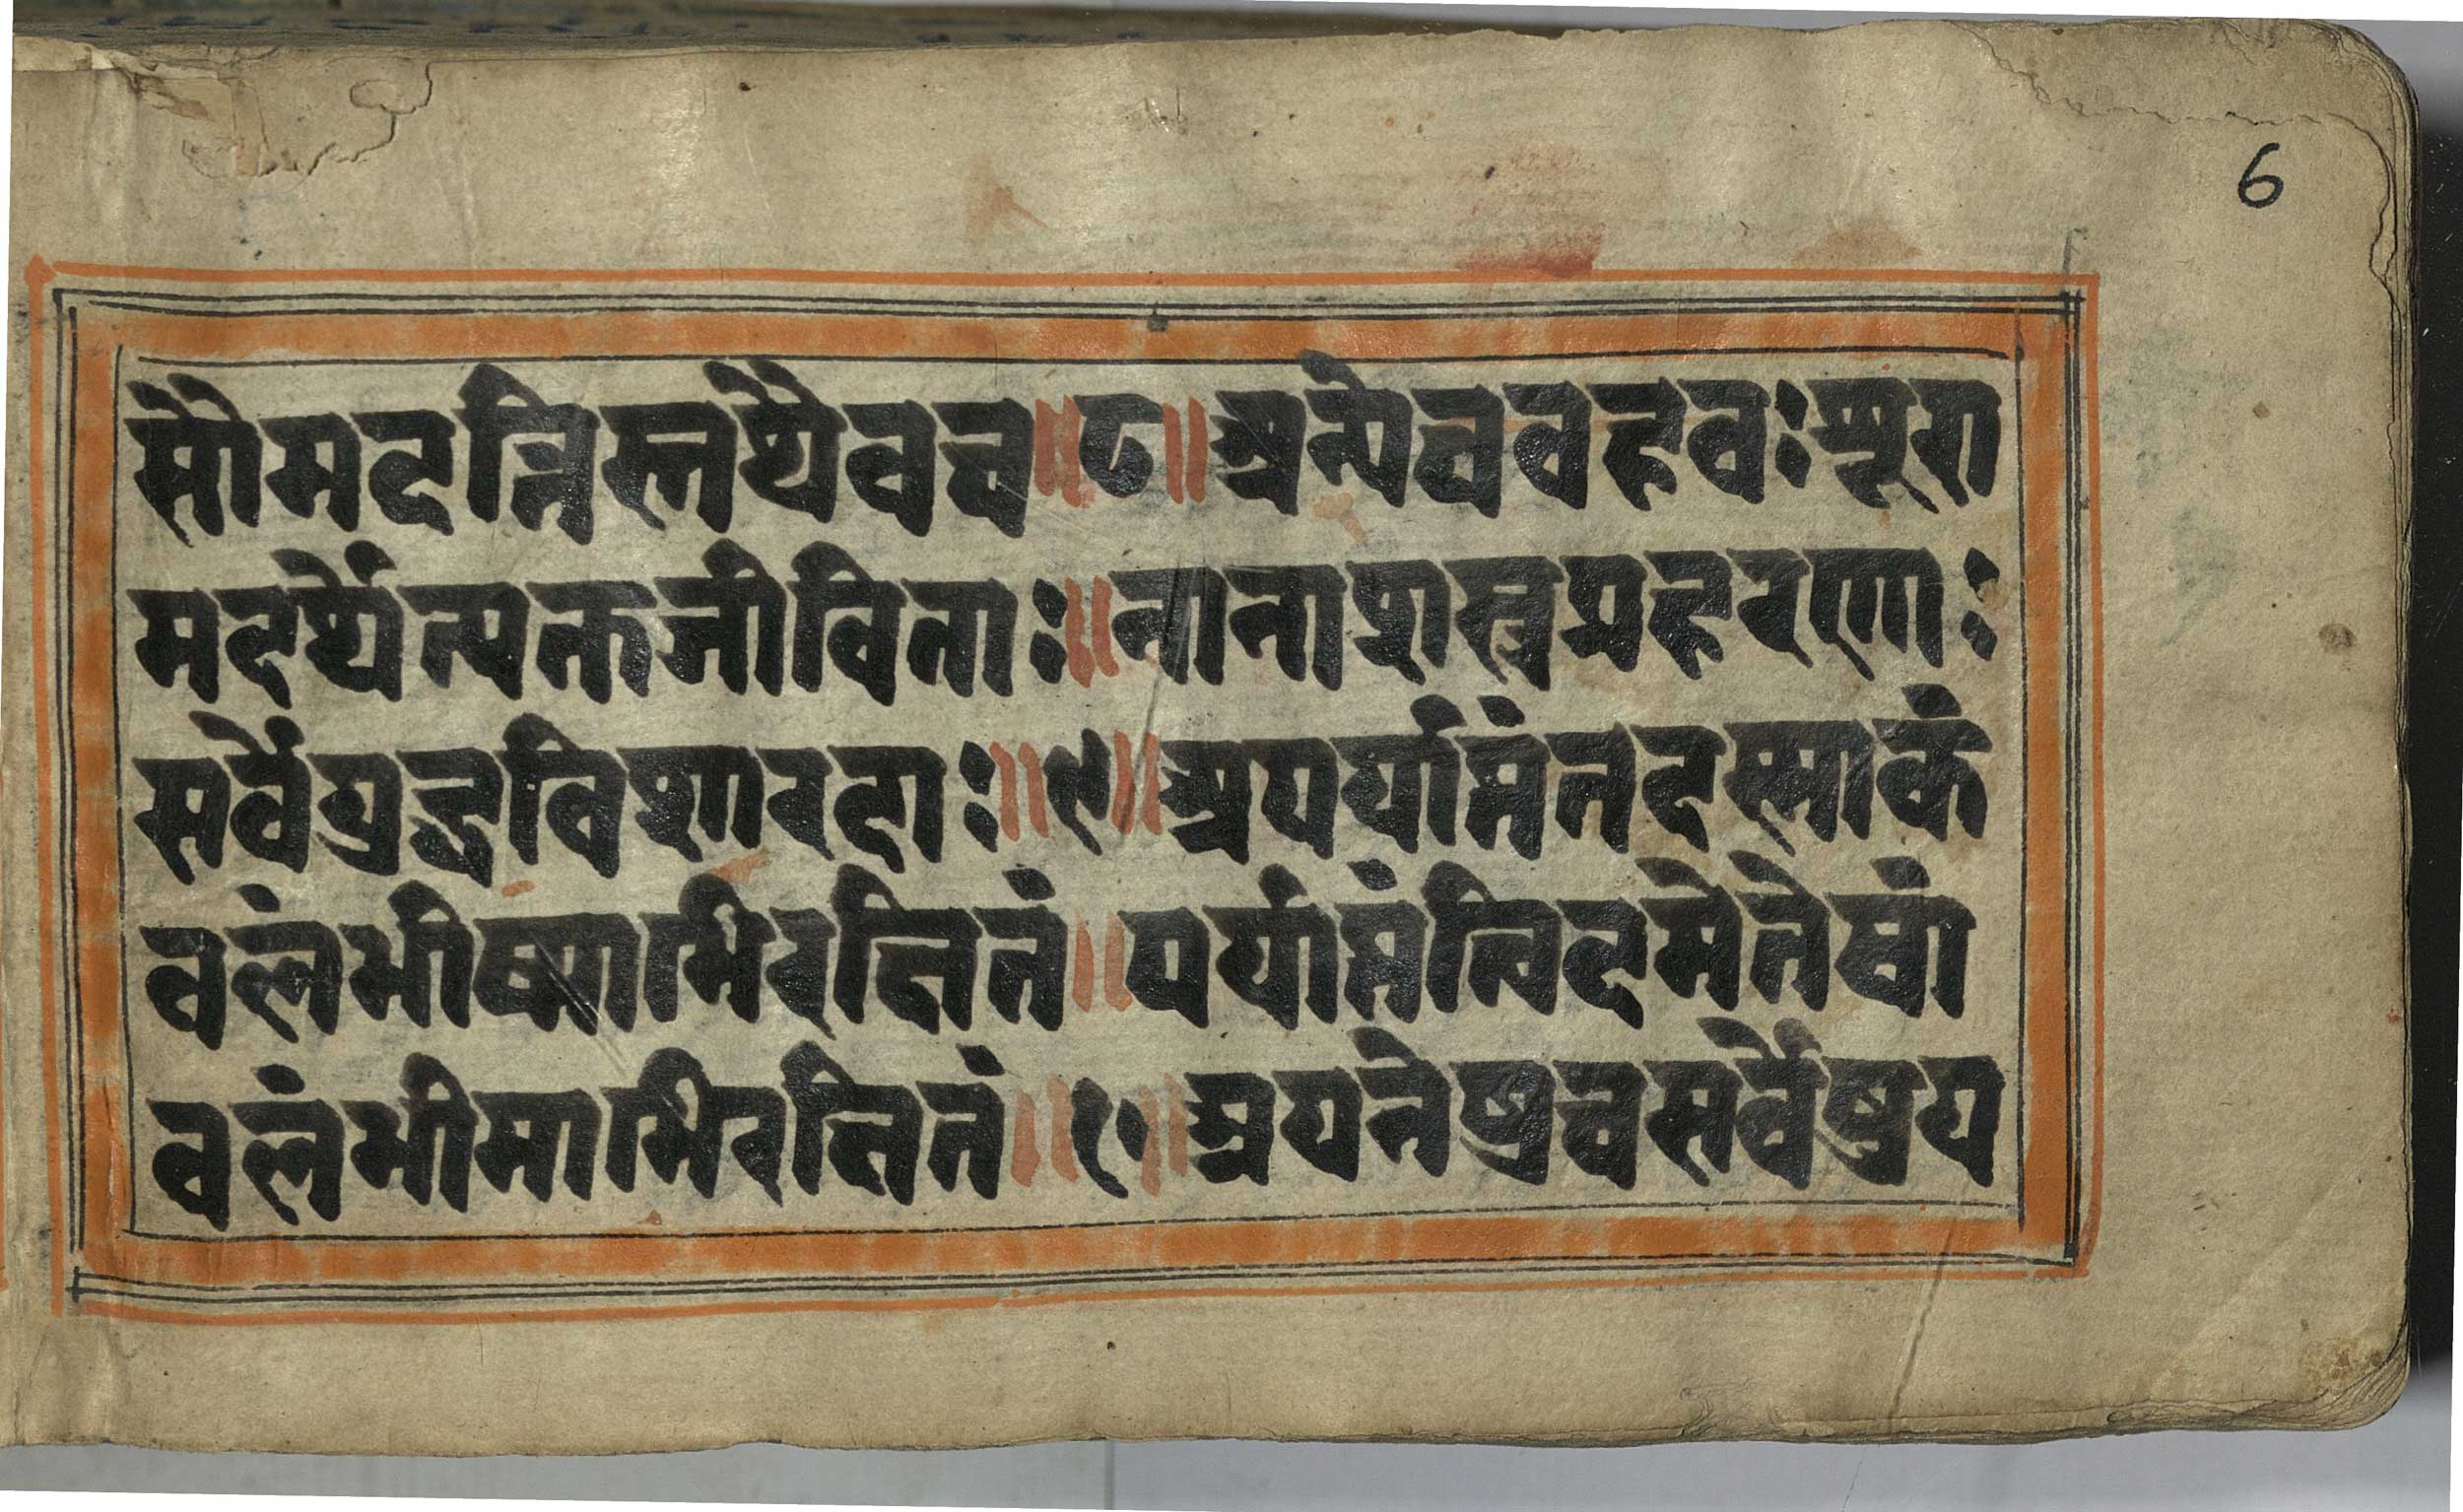 6
सौमदत्तिस्तथैवच॥८॥अन्येचवहवःशूरा
मदर्थेत्यक्तजीविताः॥नानाशस्त्रप्रहरणाः
सर्वेयुद्धविशारदाः॥९॥अपर्याप्तंतदस्माकं
वलंभीष्माभिरक्षितं॥पर्याप्तंत्विदमेतेषां
वलंभीमाभिरक्षितं॥१०॥अयनेषुचसर्वेषुय